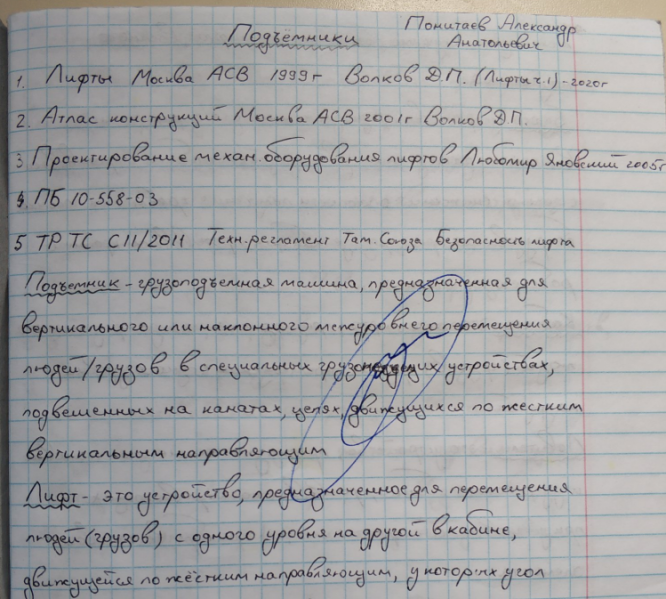 Подъёмники
Понитаев Александр
Анатольевич
1. Лифты Москва АСВ 1999г Волков Д.П. (Лифты ч.1) - 2020г
2. Атлас конструкций Москва АСВ 2001г Волков ДП.
3 Проектирование механ. оборудования лифтов Любомир Яновский 2005г
4. ПБ 10-558-03
5 ТР ТС С11/2011 Техн.регламент Там.Союза Безопасность лифта
Подъемник - грузоподъемная машина, предназначенная для
вертикального или наклонного межуровнего перемещения
людей/грузов в специальных устройствах,
подвешенных на канатах, цепях, движущихся по жестким
вертикальным направляющим
Лифт - это устройство, предназначенное для перемещения
людей (грузов) с одного уровня на другой в кабине,
движущейся по жёстким направляющим, у которых угол